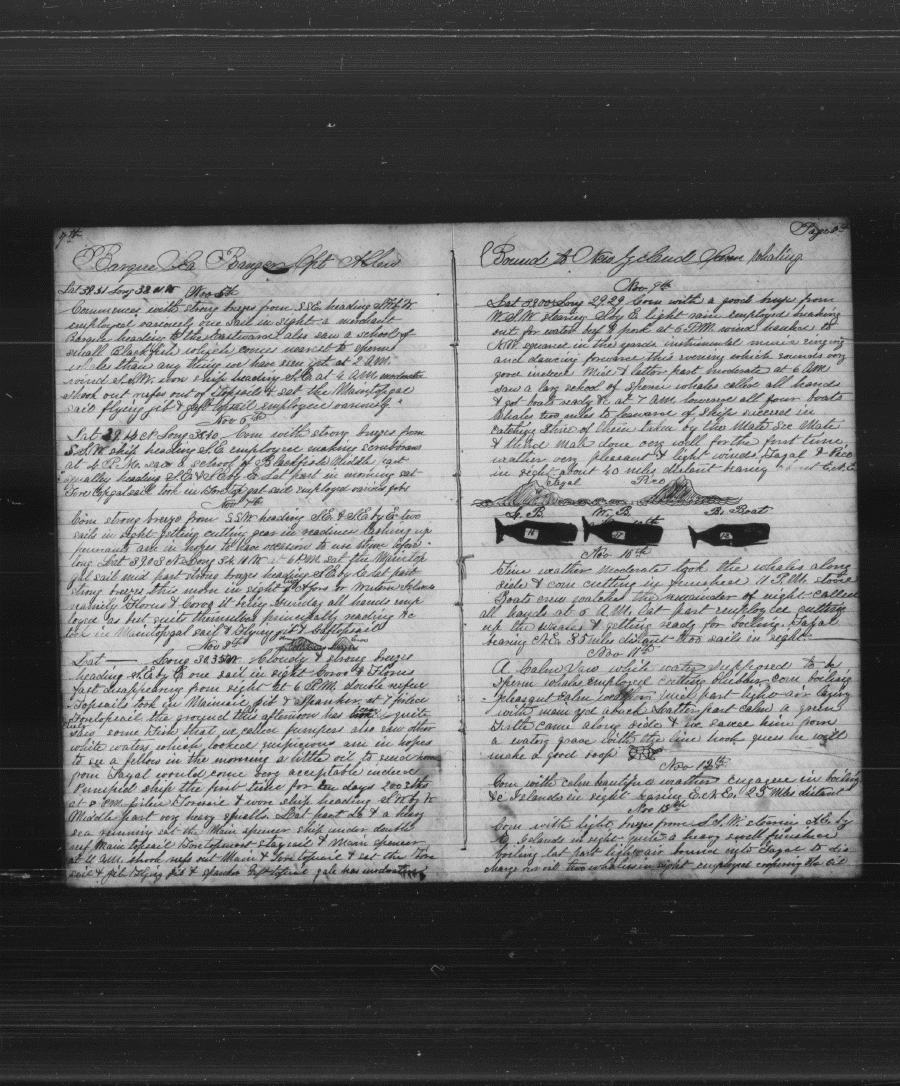 7th
Barque Sea Ranger Capt Allen
Nov 5th
Commences with strong breezes from SSE heading
employed variously one sail in sight a merchant
Barque heading to the Eastward also saw a school of
small Blackfish which comes nearest to sperm
whales than any thing we have seen yet at 2 A.M.
wore ship heading S.E. at 4 A.M. moderate
shook out reefs out of Topsails & set the Maintopgal
sail flying jib & gafftopsail employed variously
Nov 6th
Com with strong breezes from
S.S.W. ship heading S.E. employed making
at 4 P.M. saw a school of Blackfish Middle part
squally heading S.E. & SE by E. Lat part in morning set
Fore topgalsail took in Fore topgalsail employed various jobs
Nov 7th
Com strong breeze from SSW heading S.E. & S.E. by E. two
sails in sight getting cutting gear in readiness
am in hopes to have occasion to use them before
long at 6 P.M. set the Main top
gal sail mid part strong breeze heading S.E. by E. Lat part
stong breeze this morn in sight of or Western Islands
namely Florus & Corvo it being Sunday all hands emp
loyed as best suits themselves principally reading &c
took in Maintopgal sail & Flying jib & Gafftopsail
Nov 8th
Lat — Long Cloudy & strong breezes
heading S.E. by E. one sail in sight Corvo & Florus
fast disappearing from sight at 6 P.M. double reefed
Topsails took in Mainsail jib & Spanker at 7 furled
Foretopsail the ground this afternoon has been quite
saw some Fish that we called jumpers also saw short
white waters which looked suspicious am in hopes
to see a fellow in the morning a little oil to send home
from Fayal would come very acceptable indeed
Pumped ship the first time for ten days 200 sths
at 8 P.M. furled Foresail & wore ship heading
Middle part very heavy squalls. Lat part do & a heavy
sea running set the Main spencer ship under double
reef Main topsail Foretopmast staysail & Main spencer
at 11 A.M. shook reefs out Main & Fore topsail & set the Fore
sail & jib Flying jib & spanker Gafftopsail gale has moderated
Page
Bound to New Zealand Sperm Whaling
Nov 9th
Long 29.29 Com with a good breeze from
W.S.W. steering S by E light rain employed breaking
out for water beef & pork at 6 P.M. wind hauled to
N.W. squared in the yards instrumental music singing
and dancing forward this evening which sounds very
good indeed Mid & latter part moderate at 6 A.M.
saw a larg school of sperm whales called all hands
& got boats ready &c at 7 A.M. lowered all four boats
Whales two miles to leaward of ship succeed in
catching three of them taken by the Mate Sec Mate
& third Mate done very well for the first time
weather very pleasant & light winds. Fayal & Pico
in sight about 40 miles distant baring
Fayal Pico
L. B. W. B. B. Boat
Nov 10th
Fine weather moderate took the whales along
side & com cutting in finished 11 P.M. stove
Boats crew watches the remainder of night called
all hands at 5 A.M. Lat part employed cutting
up the whales & getting ready for boiling. Fayal
bearing N.E. 35 miles distant two sails in sight
Nov 11th
A. Calm Saw white water supposed to be
Sperm whales employed cutting blubber com boiling
pleasant calm weather mid part light air laying
with main yd aback Latter part calm a green
Turtle came along side & we saved him from
a watery grave with the line hook guess he will
make a good soop
Nov 12th
Com with calm beautiful weather engaged in boiling
&c Islands in sight baring E.N.E. 25 Miles distant
Nov 13th
Com with light breezes from S.S.W. steering
Islands in sight quite a heavy swell finished
boiling last part light air bound into Fayal to dis
charge our oil two whalers in sight employed coopering the oil